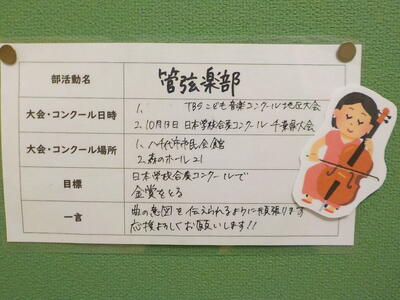 部活動名
管弦楽部
大会・コンクール日時
1、 TBSこども音楽コンクール地区大会
2、10月13日 日本学校合奏コンクール 千葉県大会
大会・コンクール場所
1、八千代市市民会館
2、森のホール21
目標
日本学校合奏コンクールで
金賞をとる
一言
曲の意図を伝えられるように頑張ります
応援よろしくお願いします!!